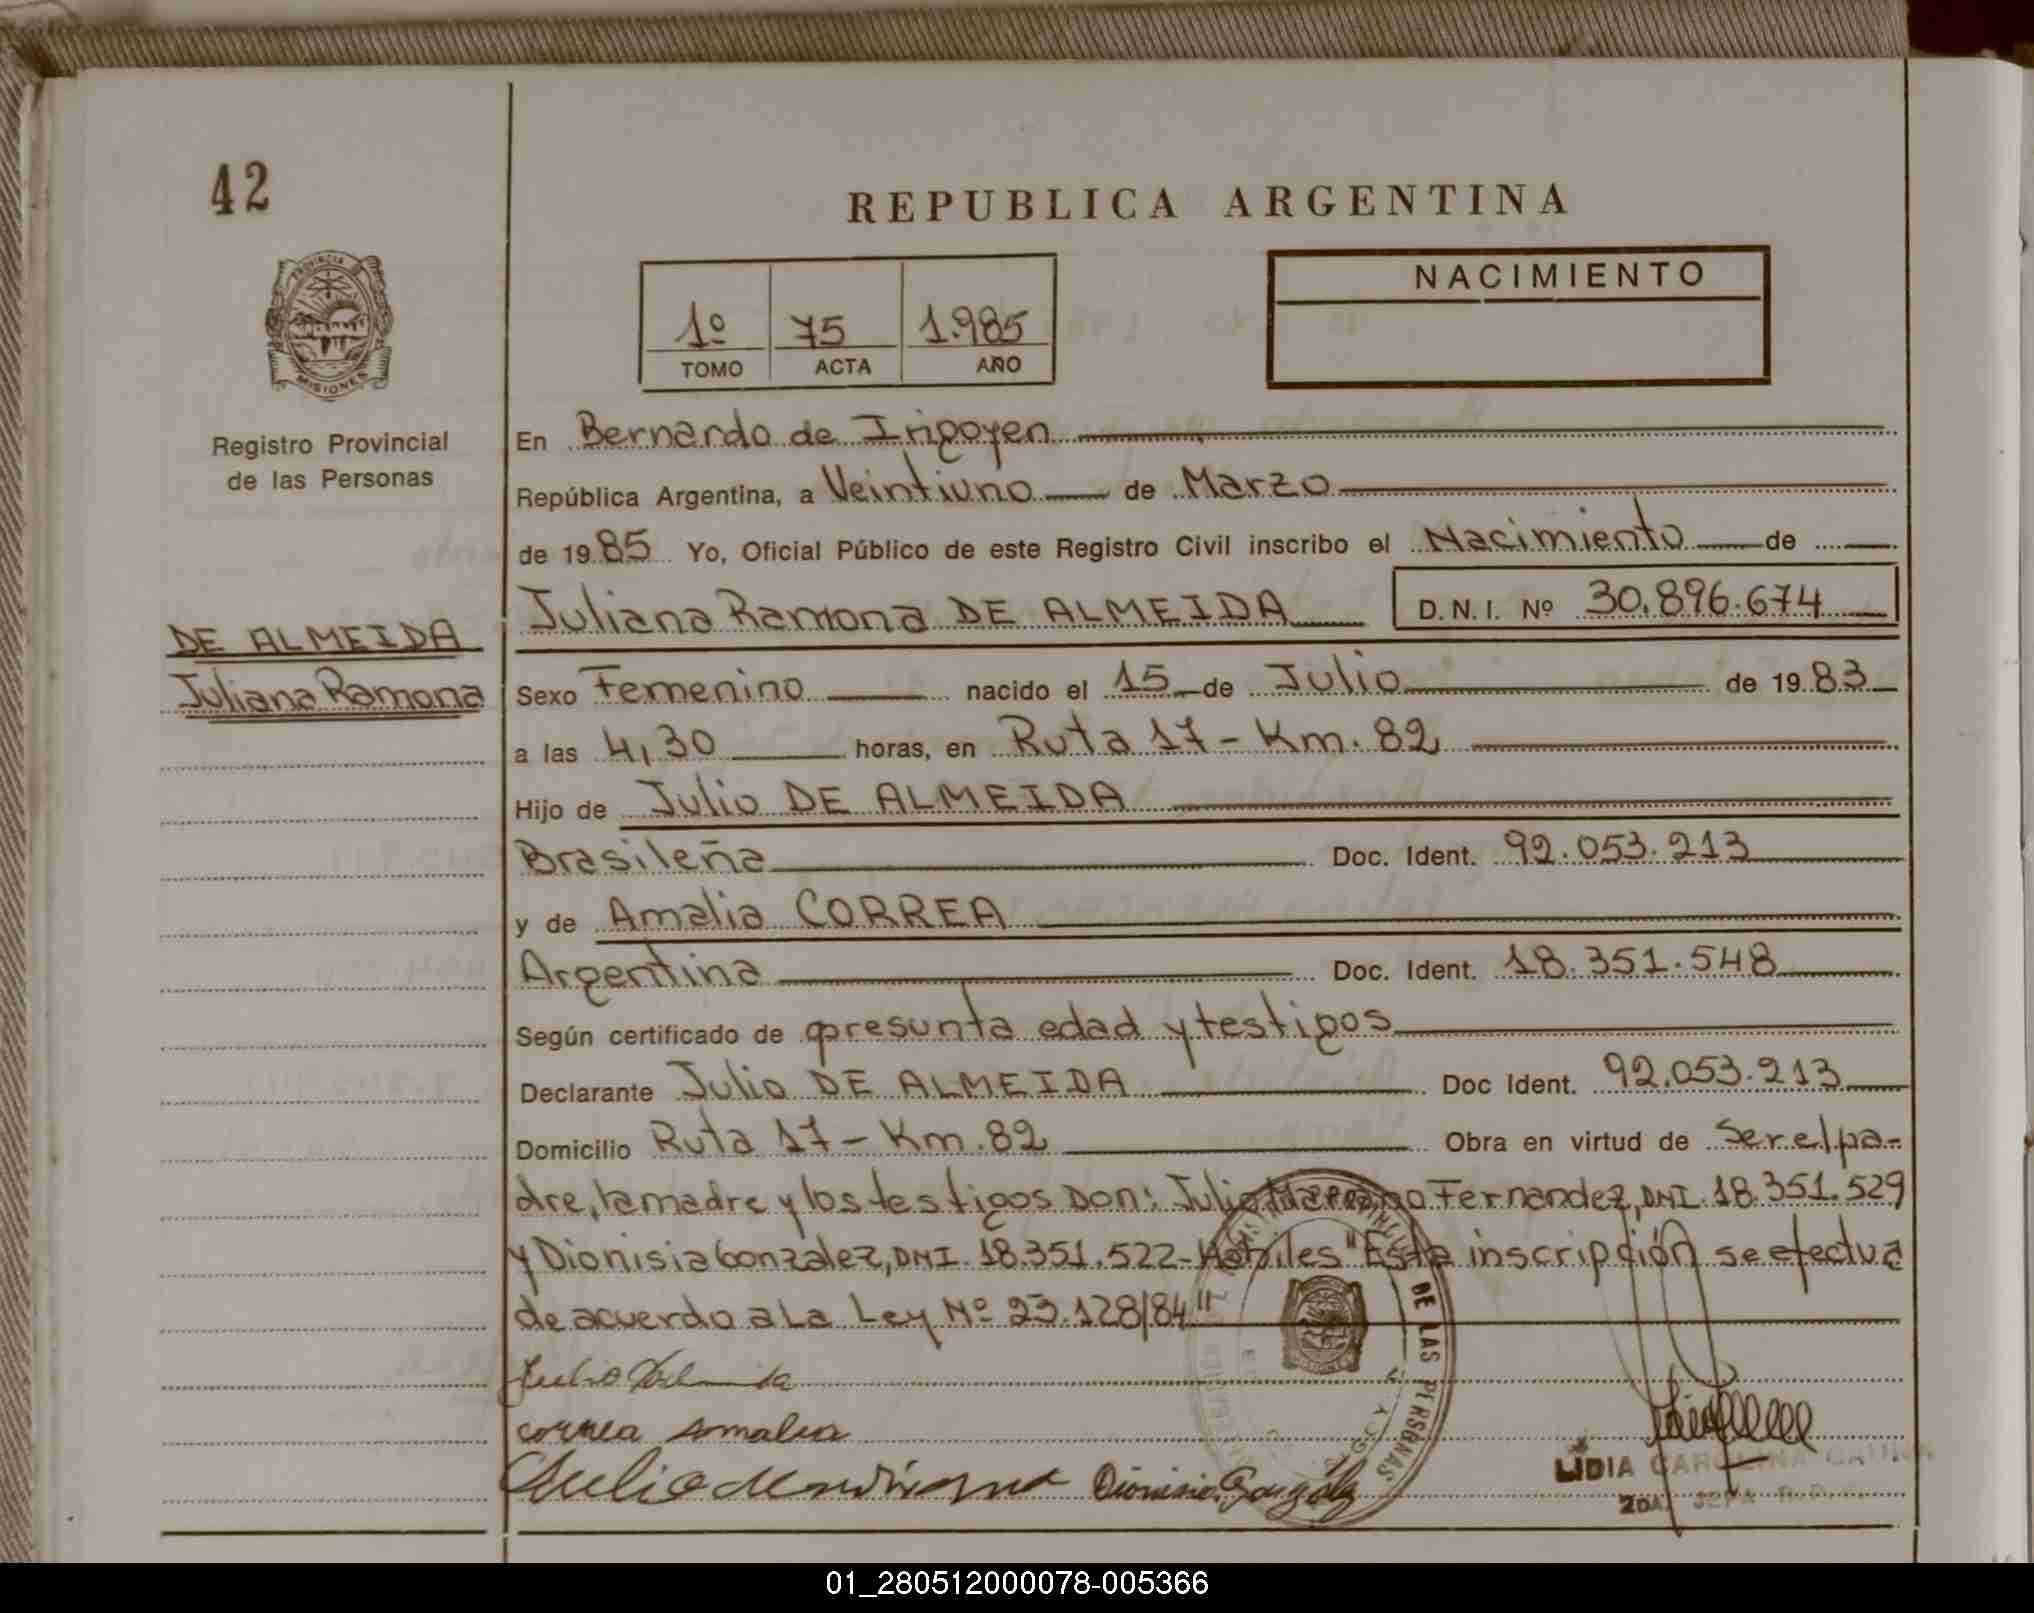 42
REPUBLICA ARGENTINA
PROVINCIA D
MISIONES
Registro Provincial
de las Personas
1º 75 1.985
TOMO ACTA AÑO
NACIMIENTO
En Bernardo de Irigoyen
República Argentina, a Veintiuno de Marzo
de 19 85 Yo, Oficial Público de este Registro Civil inscribo el Nacimiento de
Juliana Ramona DE ALMEIDA D.N.I. Nº 30.896.674
DE ALMEIDA
Juliana Ramona
Sexo Femenino nacido el 15 de Julio de 19 83
a las 4,30 horas, en Ruta 17 - Km. 82
Hijo de Julio DE ALMEIDA
Brasileña Doc. Ident. 92.053.213
y de Amalia CORREA
Argentina Doc. Ident. 18.351.548
Según certificado de presunta edad y testigos
Declarante Julio DE ALMEIDA Doc Ident. 92.053.213
Domicilio Ruta 17 - Km. 82 Obra en virtud de ser el pa-
dre, la madre y los testigos Don: Julio Fernandez, DNI. 18.351.529
y Dionisia Gonzalez, DNI. 18.351.522 - Habiles "Esta inscripción se efectua
de acuerdo a La Ley Nº 23.128/84"
DE LAS PERSONAS
correa amalia
Julio
Dionisia Gonzáles
LIDIA CAROLINA
2DA. JEFA
01_280512000078-005366